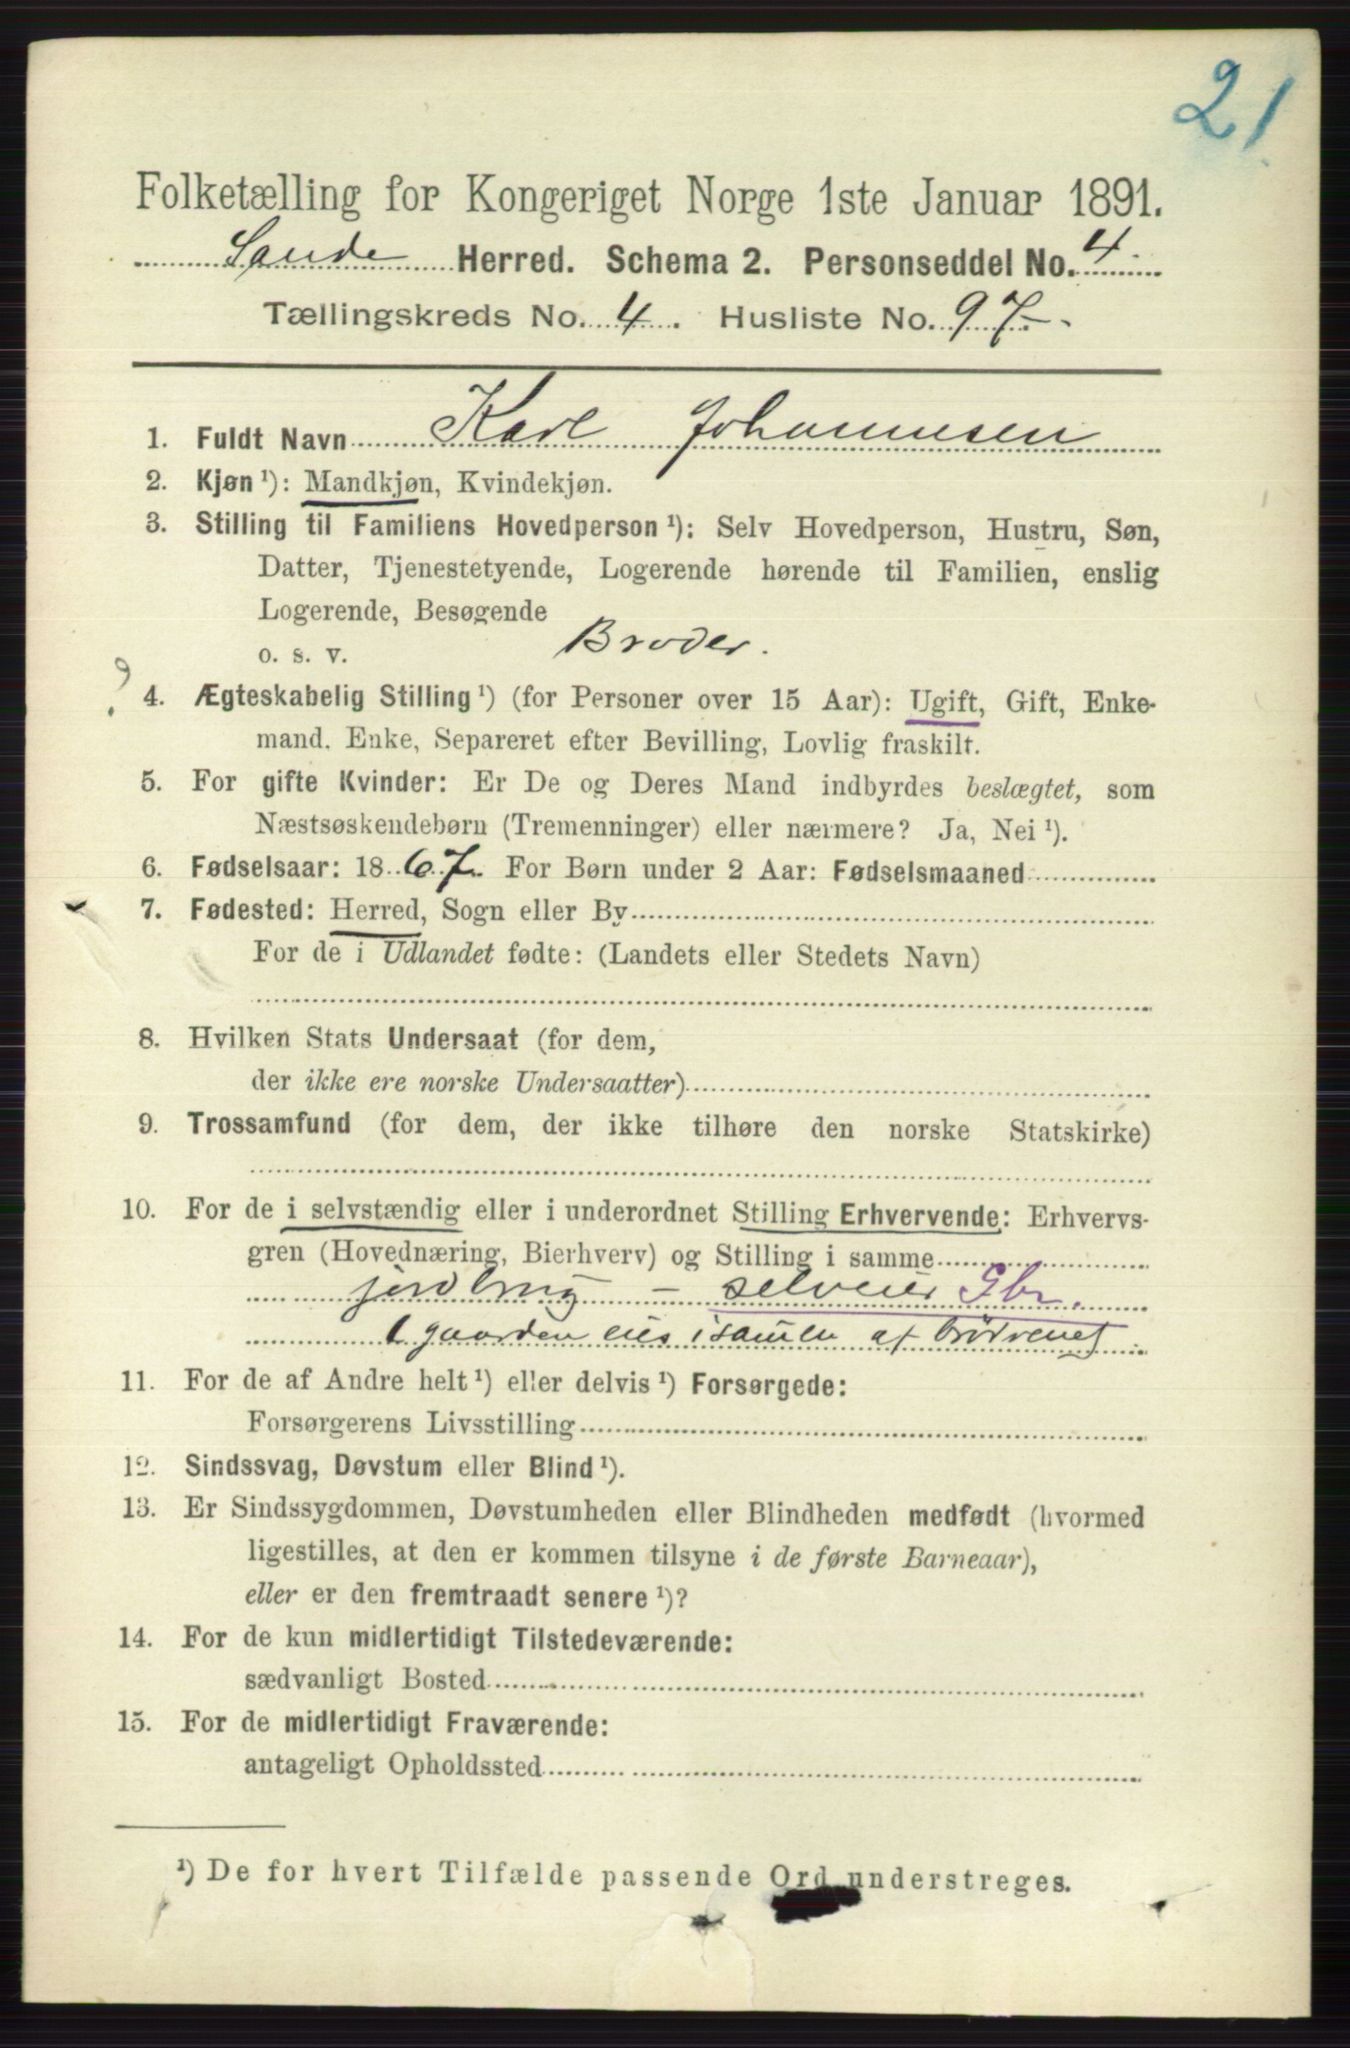 21
Folketælling for Kongeriget Norge 1ste Januar 1891.
Sande Herred. Schema 2. Personseddel No. 4
Tællingskreds No. 4. Husliste No. 97
1. Fuldt Navn Karl Johannesen
2. Kjøn ¹): Mandkjøn, Kvindekjøn.
3. Stilling til Familiens Hovedperson ¹): Selv Hovedperson, Hustru, Søn,
Datter, Tjenestetyende, Logerende hørende til Familien, enslig
Logerende, Besøgende
o. s. v. Broder.
?
4. Ægteskabelig Stilling ¹) (for Personer over 15 Aar): Ugift, Gift, Enke-
mand, Enke, Separeret efter Bevilling, Lovlig fraskilt.
5. For gifte Kvinder: Er De og Deres Mand indbyrdes beslægtet, som
Næstsøskendebørn (Tremenninger) eller nærmere? Ja, Nei ¹).
6. Fødselsaar: 1867. For Børn under 2 Aar: Fødselsmaaned
7. Fødested: Herred, Sogn eller By
For de i Udlandet fødte: (Landets eller Stedets Navn)
8. Hvilken Stats Undersaat (for dem,
der ikke ere norske Undersaatter)
9. Trossamfund (for dem, der ikke tilhøre den norske Statskirke)
10. For de i selvstændig eller i underordnet Stilling Erhvervende: Erhvervs-
gren (Hovednæring, Bierhverv) og Stilling i samme
jordbrug – selveier Gbr.
( gaarden eies isamen af brødrene)
11. For de af Andre helt ¹) eller delvis ¹) Forsørgede:
Forsørgerens Livsstilling
12. Sindssvag, Døvstum eller Blind ¹).
13. Er Sindssygdommen, Døvstumheden eller Blindheden medfødt (hvormed
ligestilles, at den er kommen tilsyne i de første Barneaar),
eller er den fremtraadt senere ¹)?
14. For de kun midlertidigt Tilstedeværende:
sædvanligt Bosted
15. For de midlertidigt Fraværende:
antageligt Opholdssted
¹) De for hvert Tilfælde passende Ord understreges.